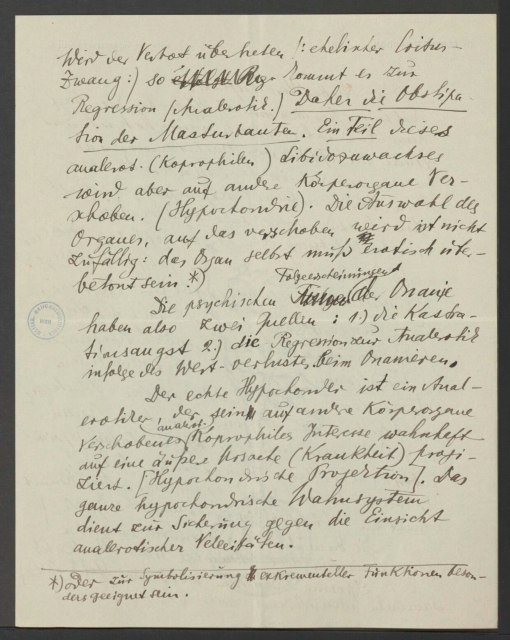 wird das Verbot übertreten (: ehelicher Coitus-
Zwang :) so kommt es zur
Regression (Analerotik.) Daher die Obstipa-
tion der Masturbanten. Ein Teil dieses
analerot. (Koprophilen) Libidozuwachses
wird aber auf andere Körperorgane ver-
schoben. (Hypochondrie). Die Auswahl des
Organes, auf das verschoben wird ist nicht
zufällig: das Organ selbst muß erotisch über-
betont sein.*)
Die psychischen Folgeerscheinungen der Onanie
haben also zwei Quellen: 1.) die Kastra-
tionsangst 2.) die Regression zur Analerotik
infolge des Wert-verlustes beim Onanieren.
Der echte Hypochonder ist ein Anal-
erotiker, der sein auf andere Körperorgane
verschobenes (analerot.) Koprophiles Interesse wahnhaft
auf eine äußere Ursache (Krankheit) proji-
ziert. [Hypochondrische Projektion]. Das
ganze hypochondrische Wahnsystem
dient zur Sicherung gegen die Einsicht
analerotischer Velleitäten.
*) Oder zur Symbolisierung exkrementeller Funktionen beson-
ders geeignet sein.